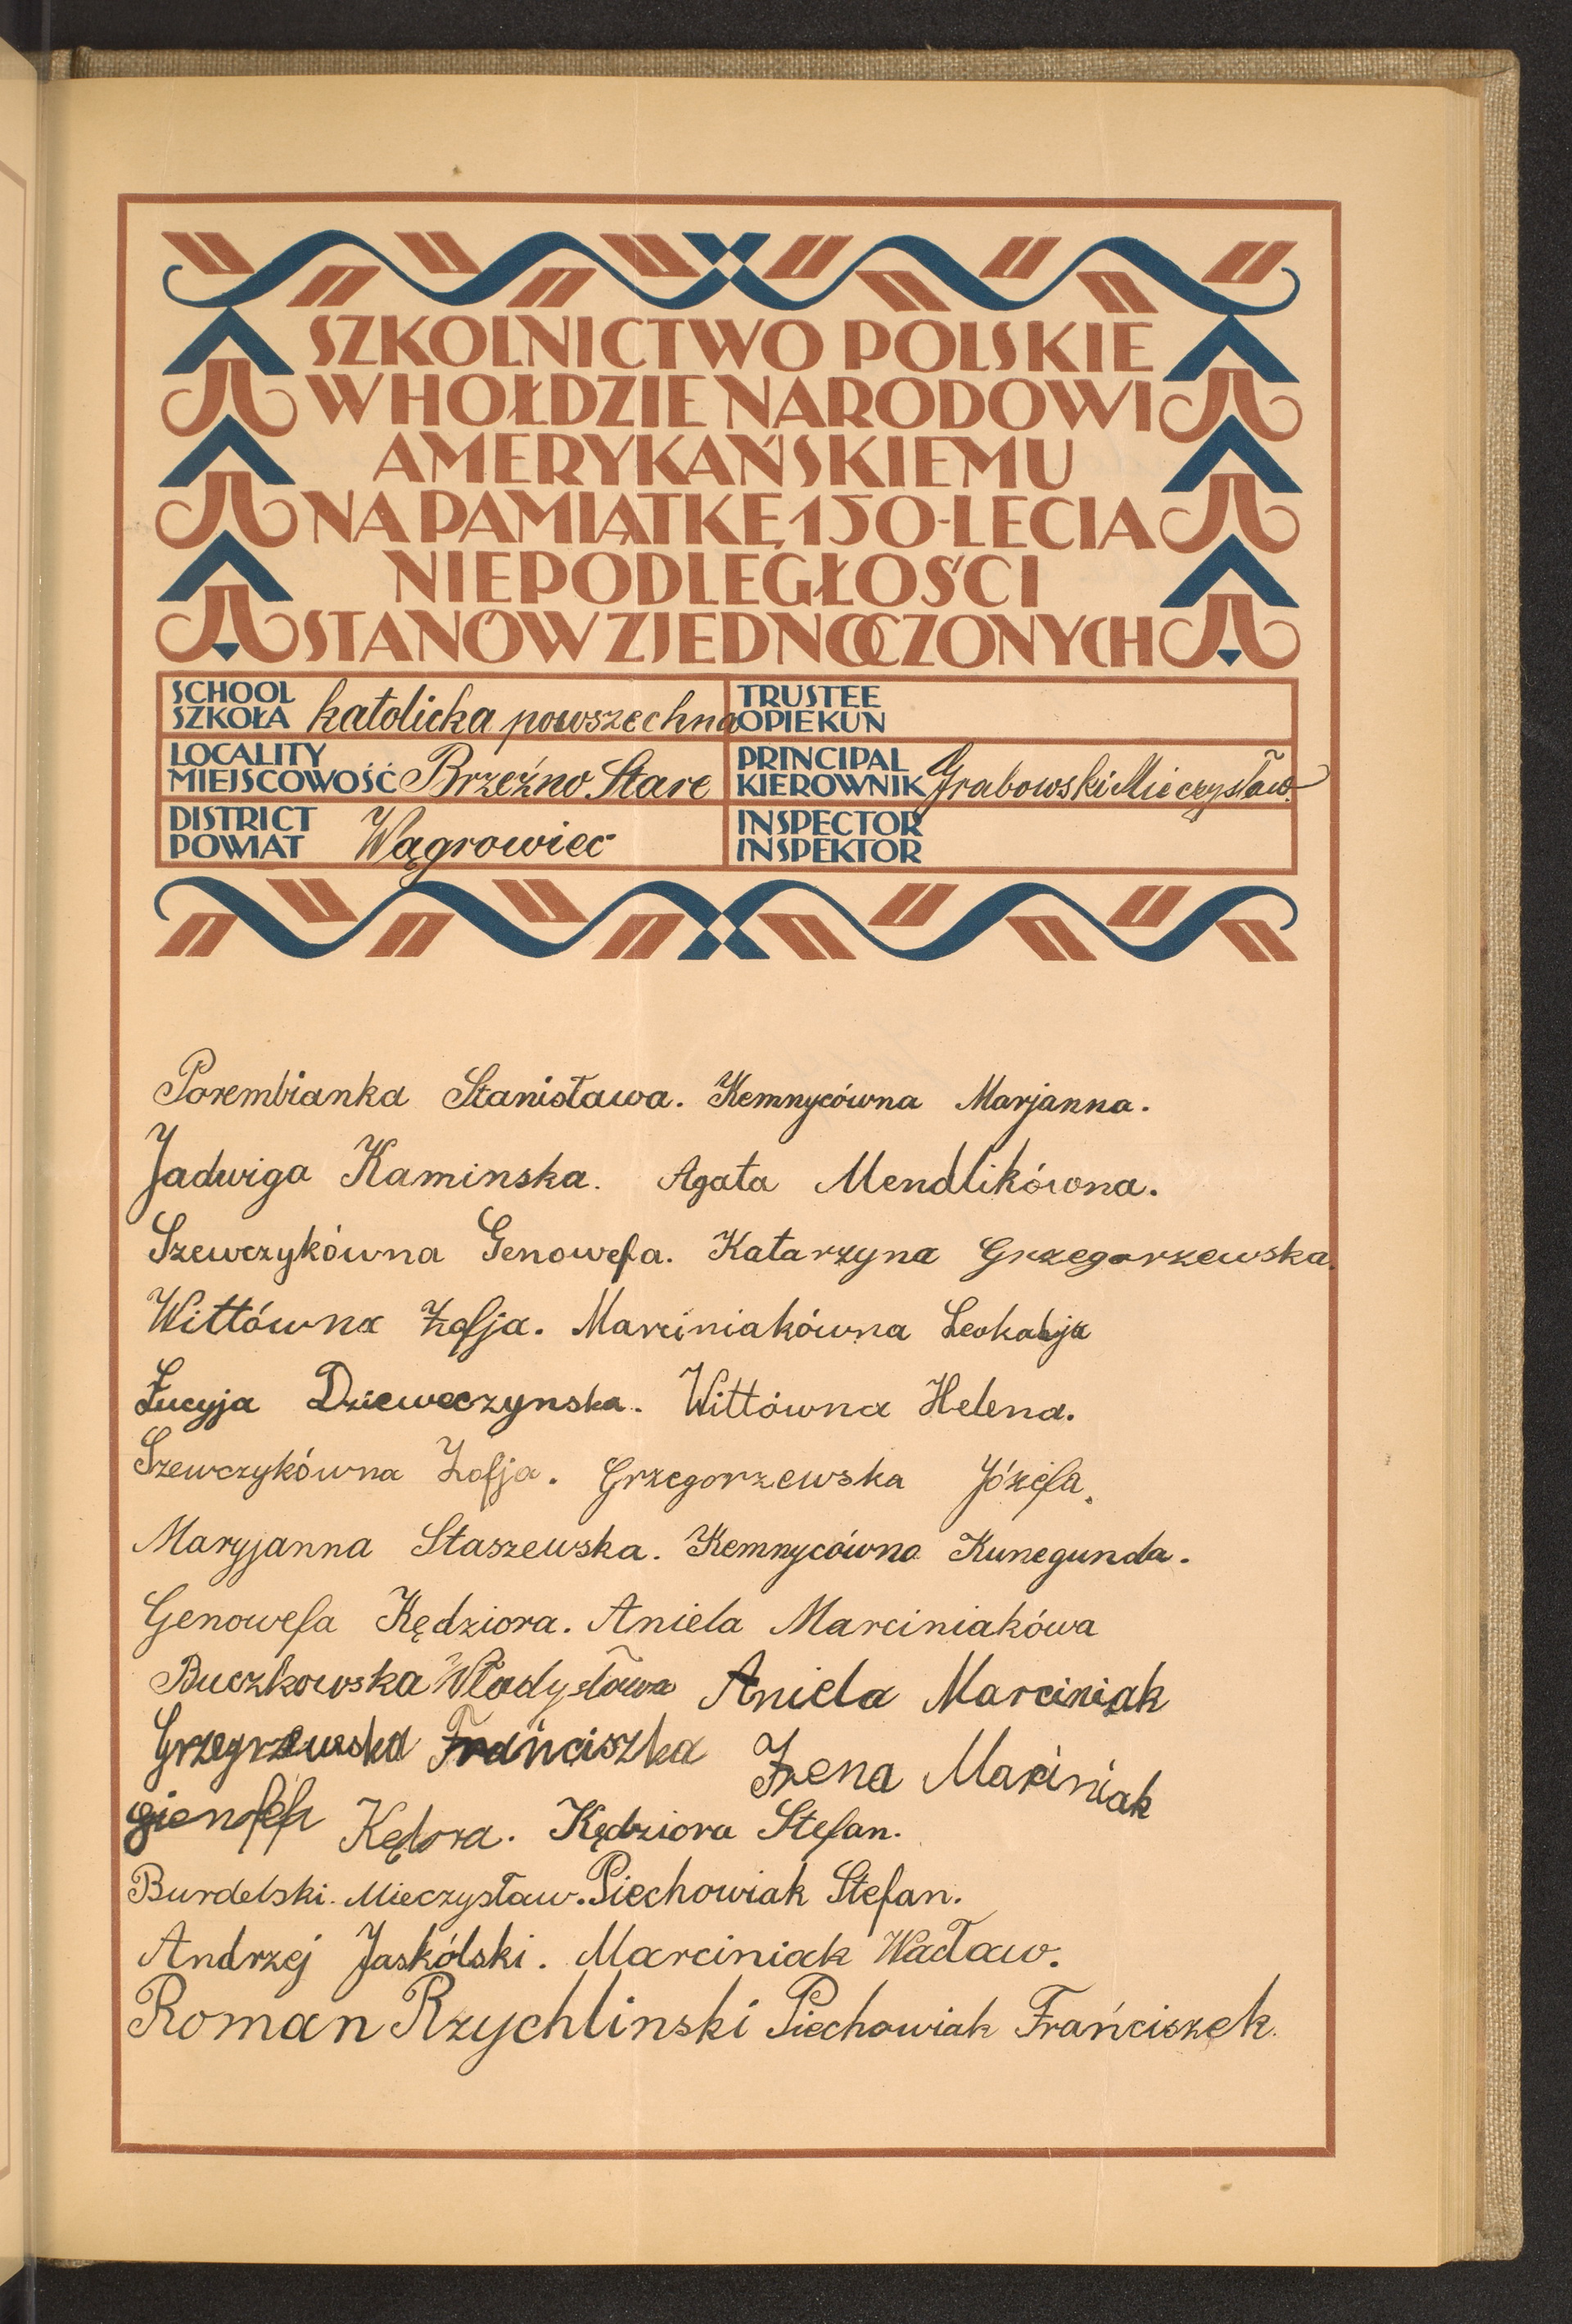 SZKOLNICTWO POLSKIE
W HOŁDZIE NARODOWI
AMERYKAŃSKIEMU
NA PAMIĄTKĘ 150-LECIA
NIEPODLEGŁOŚCI
STANÓW ZJEDNOCZONYCH
SCHOOL
SZKOŁA katolicka powszechna
TRUSTEE
OPIEKUN
LOCALITY
MIEJSCOWOŚĆ Brzeźno Stare
PRINCIPAL
KIEROWNIK Grabowski Mieczysław.
DISTRICT
POWIAT Wągrowiec
INSPECTOR
INSPEKTOR
Porembianka Stanisława. Kemnycówna Marjanna.
Jadwiga Kaminska. Agata Mendlikówna.
Szewczykówna Genowefa. Katarzyna Grzegorzewska.
Wittówna Zofja. Marciniakówna Leokadja
Łucyja Dzieweczynska. Wittówna Helena.
Szewczykówna Zofja. Grzegorzewska Józefa.
Maryjanna Staszewska. Kemnycówna Kunegunda.
Genowefa Kędziora. Aniela Marciniakówa
Buczkowska Władysława Aniela Marciniak
Grzegrzewska Frańciszka Irena Marciniak
Kędora. Kędziora Stefan.
Burdelski. Mieczysław. Piechowiak Stefan.
Andrzej Jaskólski. Marciniak Wacław.
Roman Rzychlinski Piechowiak Frańciszek.